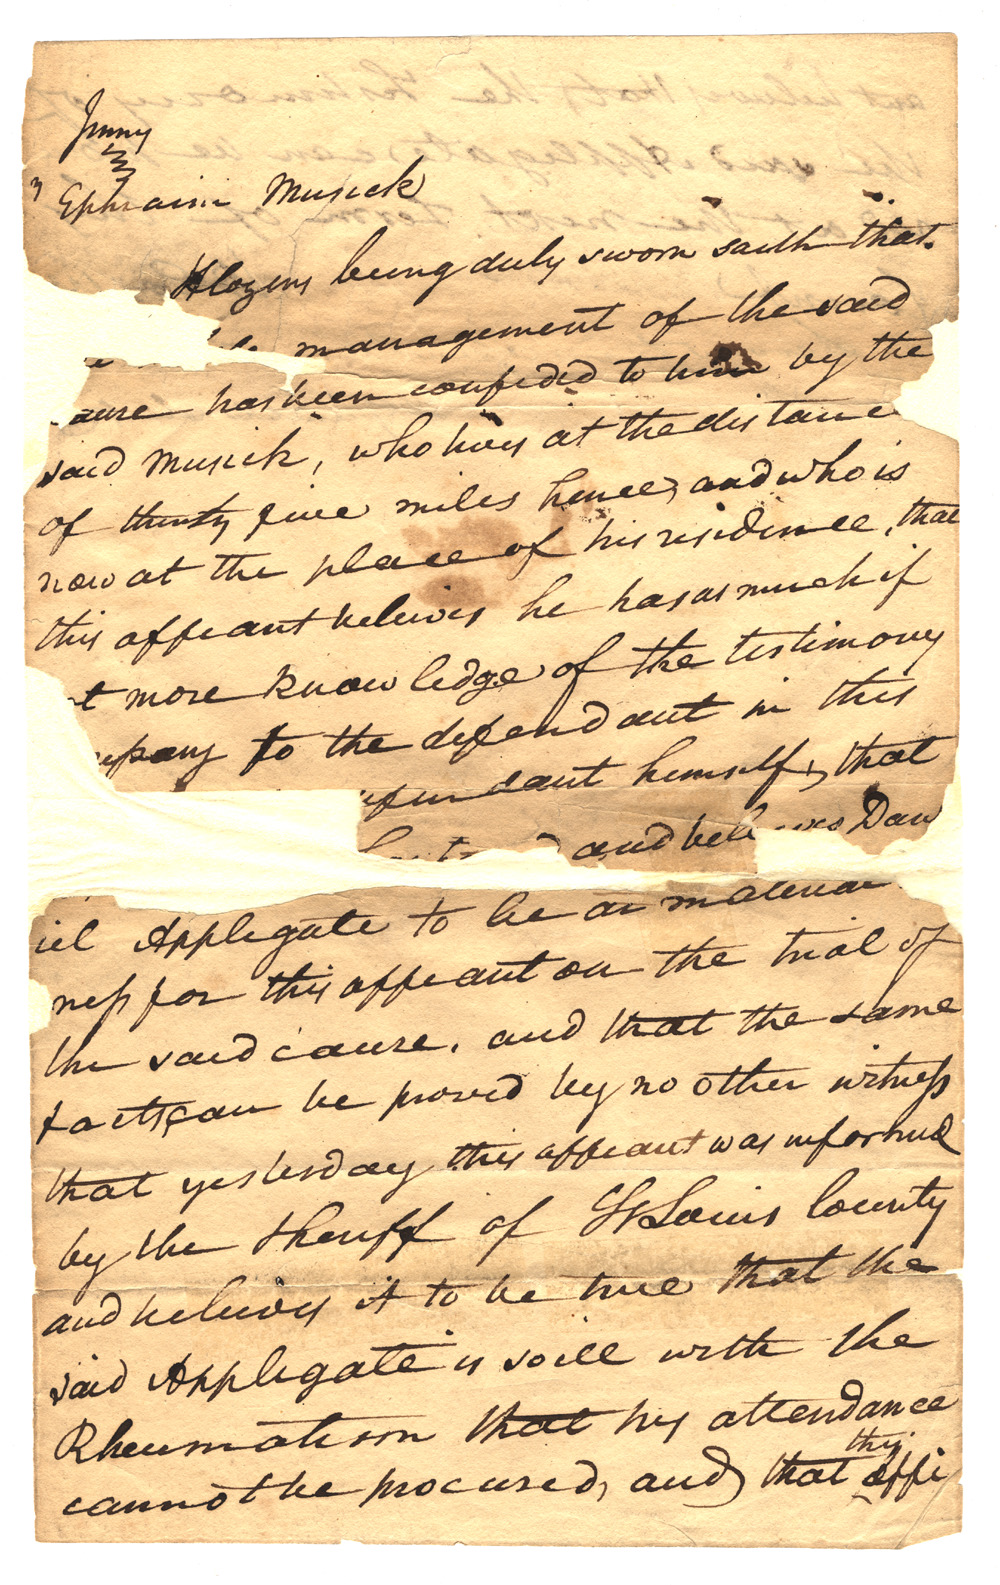 Jinny
vs
Ephraim Musick
H Cozens being duly sworn saith that
management of the said
ause has been confided to him by the
said Musick, who lives at the distance
of thirty five miles hence, and who is
now at the place of his residence, that
this affeant believes he has as much if
t more knowledge of the testimony
to the defendant in this
fendant himself, that
and believes Dan
iel Applegate to be a material
ness for this affeant on the trial of
the said cause. and that the same
facts can be proved by no other witness
that yesterday this affeant was informed
by the Sheriff of St Louis County
and believes it to be true that the
said Applegate is so ill with the
Rheumatism that his attendance
cannot be procured, and that this affi